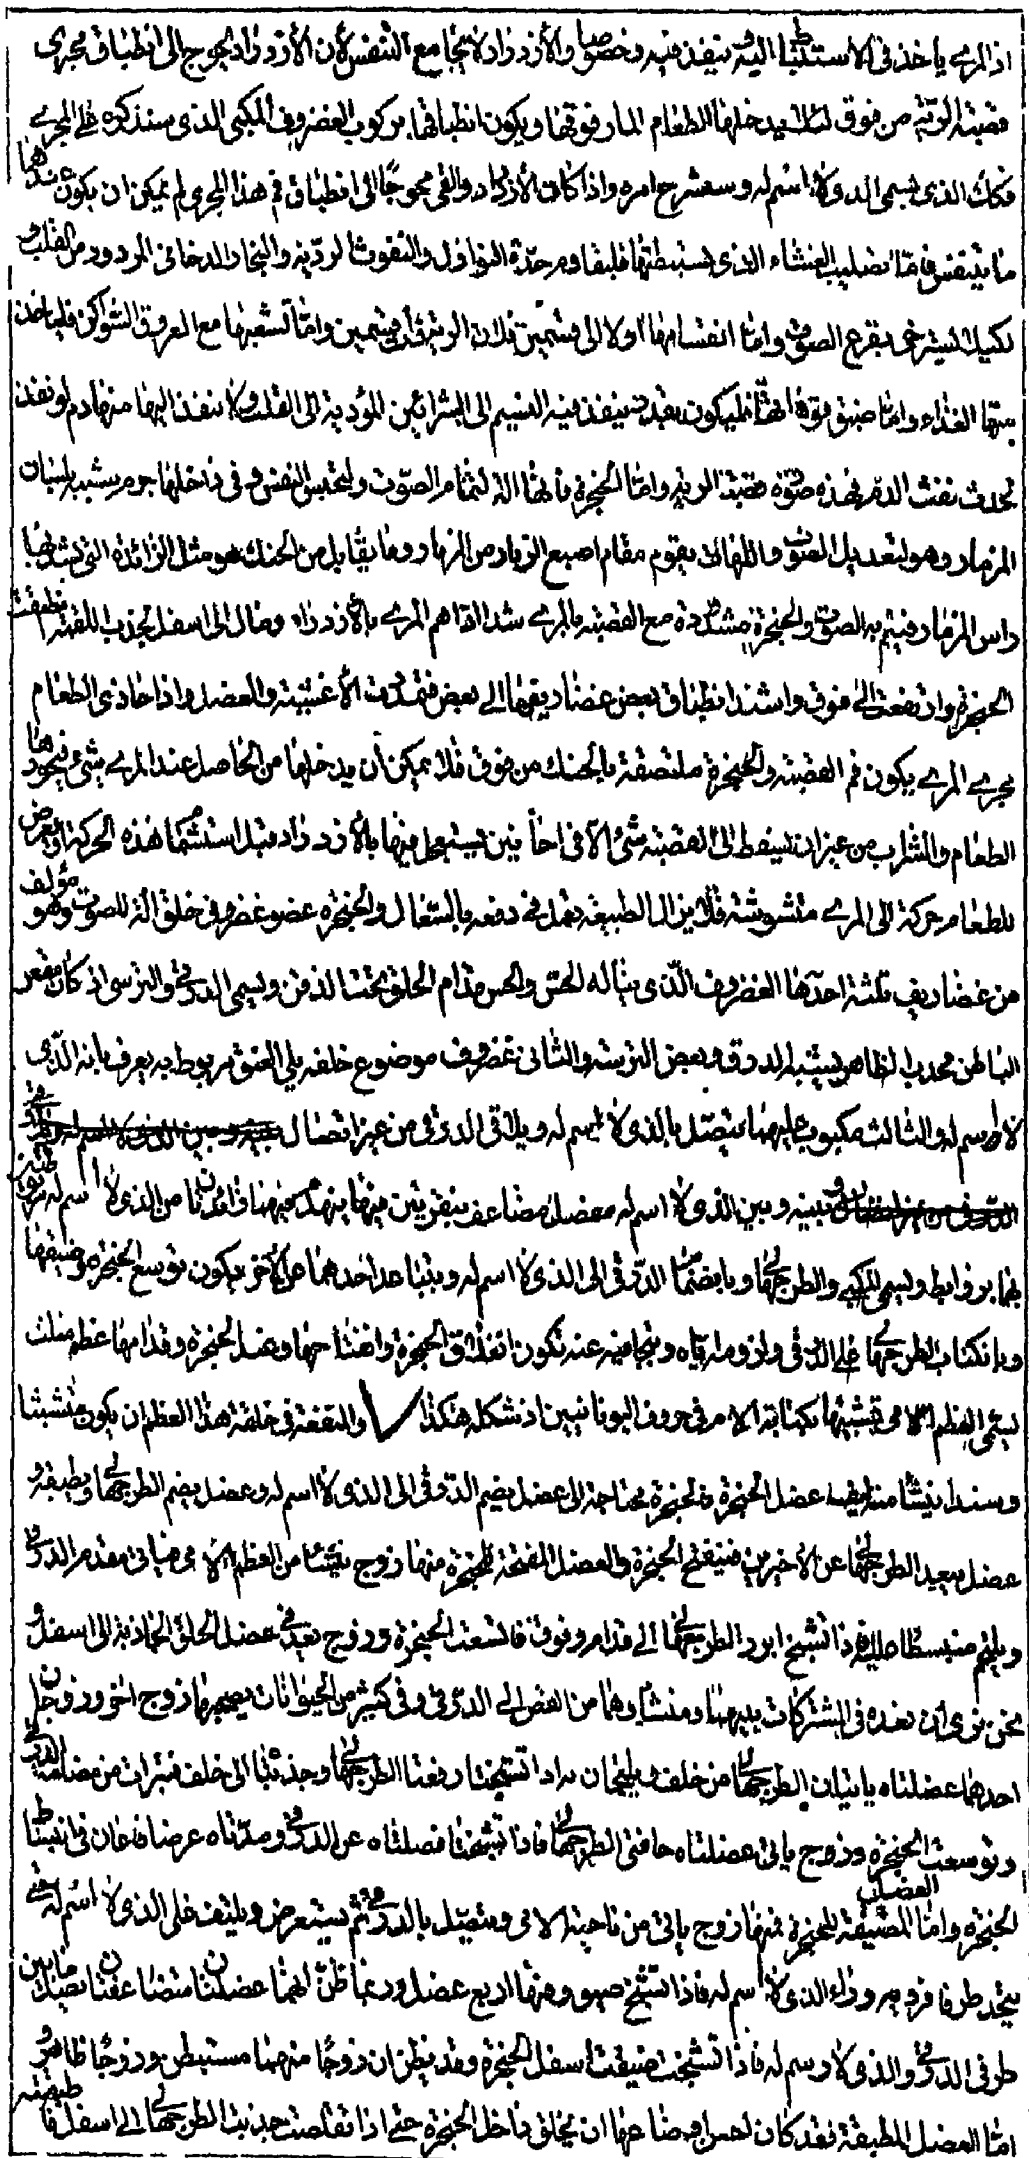 اذ المرى ياخذ فى الاستبطان اليه تنفذ فيه وخصوصا والازدراد لا يجامع التنفس لان الازدراد يحوج الى انطباق مجرى
قصبة الرئة من فوق لئلا يدخلها الطعام المار فوقها ويكون انطباقها بركوب الغضروف المكبى الذى سنذكره على المجرى
وكذلك الذى يسمى الذى لا اسم له وسنشرح امره واذا كان الازدراد والقى محوجا الى انطباق فم هذا المجرى لم يمكن ان يكون عندهما
ما يتنفس فاما تصليب الغشاء الذى يستبطنها فليقاوم حدة النوازل والنفوث الردية والبخار الدخانى المردود من القلب و
لكيلا يسترخى بقرع الصوت واما انقسامها اولا الى قسمين فلان الرئة قسمين واما تشعبها مع العروق السواكن فلياخذ
منها الغذاء واما ضيق فوهاتها فليكون بقدر ينفذ فيه النسيم الى الشرائين المودية الى القلب ولا ينفذ اليها منها دم لو نفذ
يحدث نفث الدم فهذه صورة قصبة الرية واما الحنجرة فانها الة لتمام الصوت ولحبس النفس وفى داخلها جرم شبيه بلسان
المزمار وهو لتعديل الصوت واللهاة تقوم مقام اصبع الزمار من المزمار وما يقابل من الحنك هو مثل الزائدة التى تشد بها
راس المزمار فيتم به الصوت والحنجرة مشدودة مع القصبة بالمرى شدا اذا هم المرى بالازدراد ومال الى اسفل لجذب اللقمة انطبقت
الحنجرة وارتفعت الى فوق واشتد انطباق بعض غضاريفها الى بعض فتمددت الاغشية والعضل واذا حاذى الطعام
مجرى المرى يكون فم القصبة والحنجرة ملتصقة بالحنك من فوق فلا يمكن ان يدخلها من الحاصل عند المرى شىء فيجوزها
الطعام والشراب من غير ان يسقط الى القصبة شىء الا فى احايين يستعجل فيها بالازدراد قبل استتمام هذه الحركة او يعرض
للطعام حركة الى المرى متشوشة فلا يزال الطبيعة تعمل فى دفعه بالسعال والحنجرة عضو غضروفى خلق الة للصوت وهو مؤلف
من غضاريف ثلثة احدها الغضروف الذى يناله الحس والجس قدام الحلق تحت الذقن ويسمى الدرقى والترسى اذ كان مقعر
الباطن محدب الظاهر يشبه الدرقة وبعض الترسة والثانى غضروف موضوع خلفه يلى العنق مربوط به يعرف بانه الذى
لا اسم له والثالث مكبوب عليهما يتصل بالذى لا اسم له ويلاقى الدرقى من غير اتصال
بينه وبين الذى لا اسم له مفصل مضاعف بنقرتين فيها يتهندم فيهما زائدتان من الذى لا اسم له مربوطتين
بهما بروابط ويسمى المكبى والطرجهالى وبانضمام الدرقى الى الذى لا اسم له وبتباعد احدهما عن الاخر يكون توسع الحنجرة وضيقها
وبانكباب الطرجهالى على الدرقى ولزومه اياه وبتجافيه عنه تكون انغلاق الحنجرة وانفتاحها وعند الحنجرة وقدامها عظم مثلث
يسمى العظم اللامى تشبيها بكتابة اللام فى حروف اليونانيين اذ شكله هكذا والمنفعة فى خلقة هذا العظم ان يكون متشبثا
وسندا ينشا منه ليف عضل الحنجرة والحنجرة محتاجة الى عضل يضم الدرقى الى الذى لا اسم له وعضل يضم الطرجهالى ويطبقه و
عضل يبعد الطرجهالى عن الاخرين فينفتح الحنجرة والعضل المفتحة للحنجرة منها زوج ينشا من العظم اللامى فياتى مقدم الدرقى
ويلتحم منبسطا عليه فاذا تشنج ابرز الطرجهالى الى قدام وفوق فاتسعت الحنجرة وزوج يعد فى عضل الحلق الجاذبة الى اسفل و
نحن نرى ان نعده فى المشتركات بينهما ومنشاوهما من القص الى الدرقى وفى كثير من الحيوانات يصحبها زوج اخر وزوجان
احدهما عضلتاه ياتيان الطرجهالى من خلف ويلتحمان به اذا تشنجتا رفعتا الطرجهالى وجذبتا الى خلف فتبرا من مضامة الدرقى
وتوسعت الحنجرة وزوج ياتى عضلتاه حافتى الطرجهالى فاذا تشنجتا فصلتاه عن الدرقى ومدتاه عرضا فاعان فى انبساط
الحنجرة واما العضلات المضيقة للحنجرة فمنها زوج ياتى من ناحية اللامى ويتصل بالدرقى ثم يستعرض ويلتف على الذى لا اسم له حتى
يتحد طرفا فرديه وراء الذى لا اسم له فاذا تشنج ضيق ومنها اربع عضل وربما ظن انهما عضلتان متضاعفتان يصل ما بين
طرفى الدرقى والذى لا اسم له فاذا تشنجت ضيقت اسفل الحنجرة وقد يظن ان زوجا منهما مستبطن وزوجا ظاهر و
اما العضل المطبقة فقد كان احسن اوضاعها ان يخلق داخل الحنجرة حتى اذا تقلصت جذبت الطرجهالى الى اسفل فاطبقته